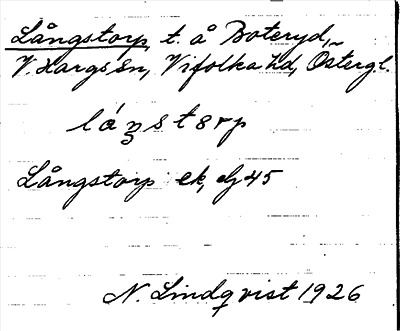 Långstorp, t. å Boteryd,
V. Hargs sn, Vifolka hd, Östergl.
Långstorp ek,
N. Lindqvist 1926